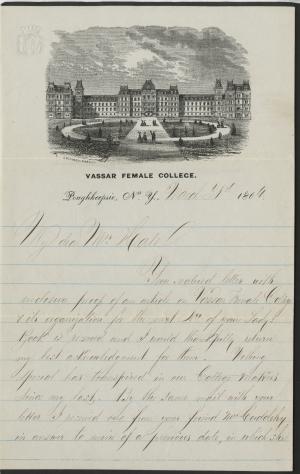 VASSAR FEMALE COLLEGE.
Poughkeepsie, N. Y. 1864
My dear Mrs Hale
Your valued letter with
enclosed proof of an article on Vassar Female College
& its organization for the next No of your Lady's
Book is received and I would thankfully return
my best acknowledgment for them. Nothing
special has transpired in our College relations
since my last. By the same mail with your
letter I received one from your friend Mrs
in answer to mine of a previous date, in which she